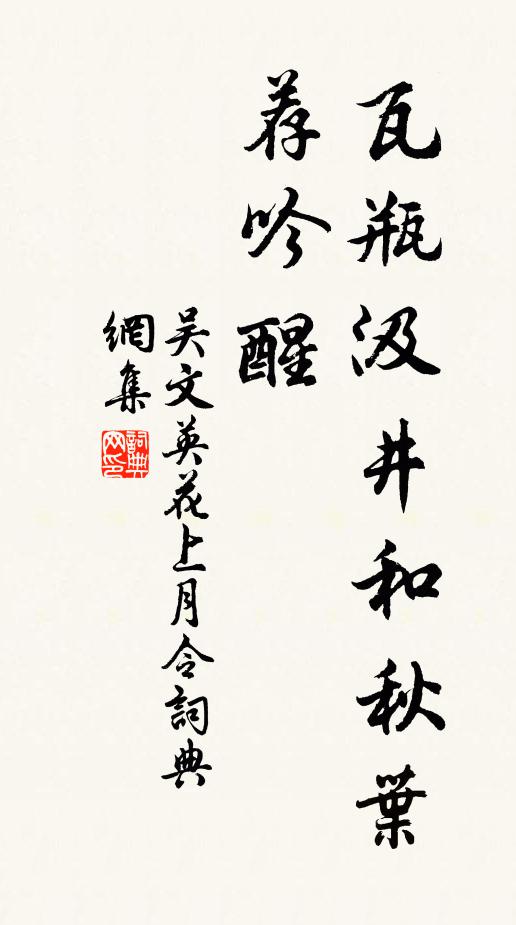 瓦瓶汲井和秋葉
荐吟醒
吴文英花上月令詞典
網集
詞典
网印